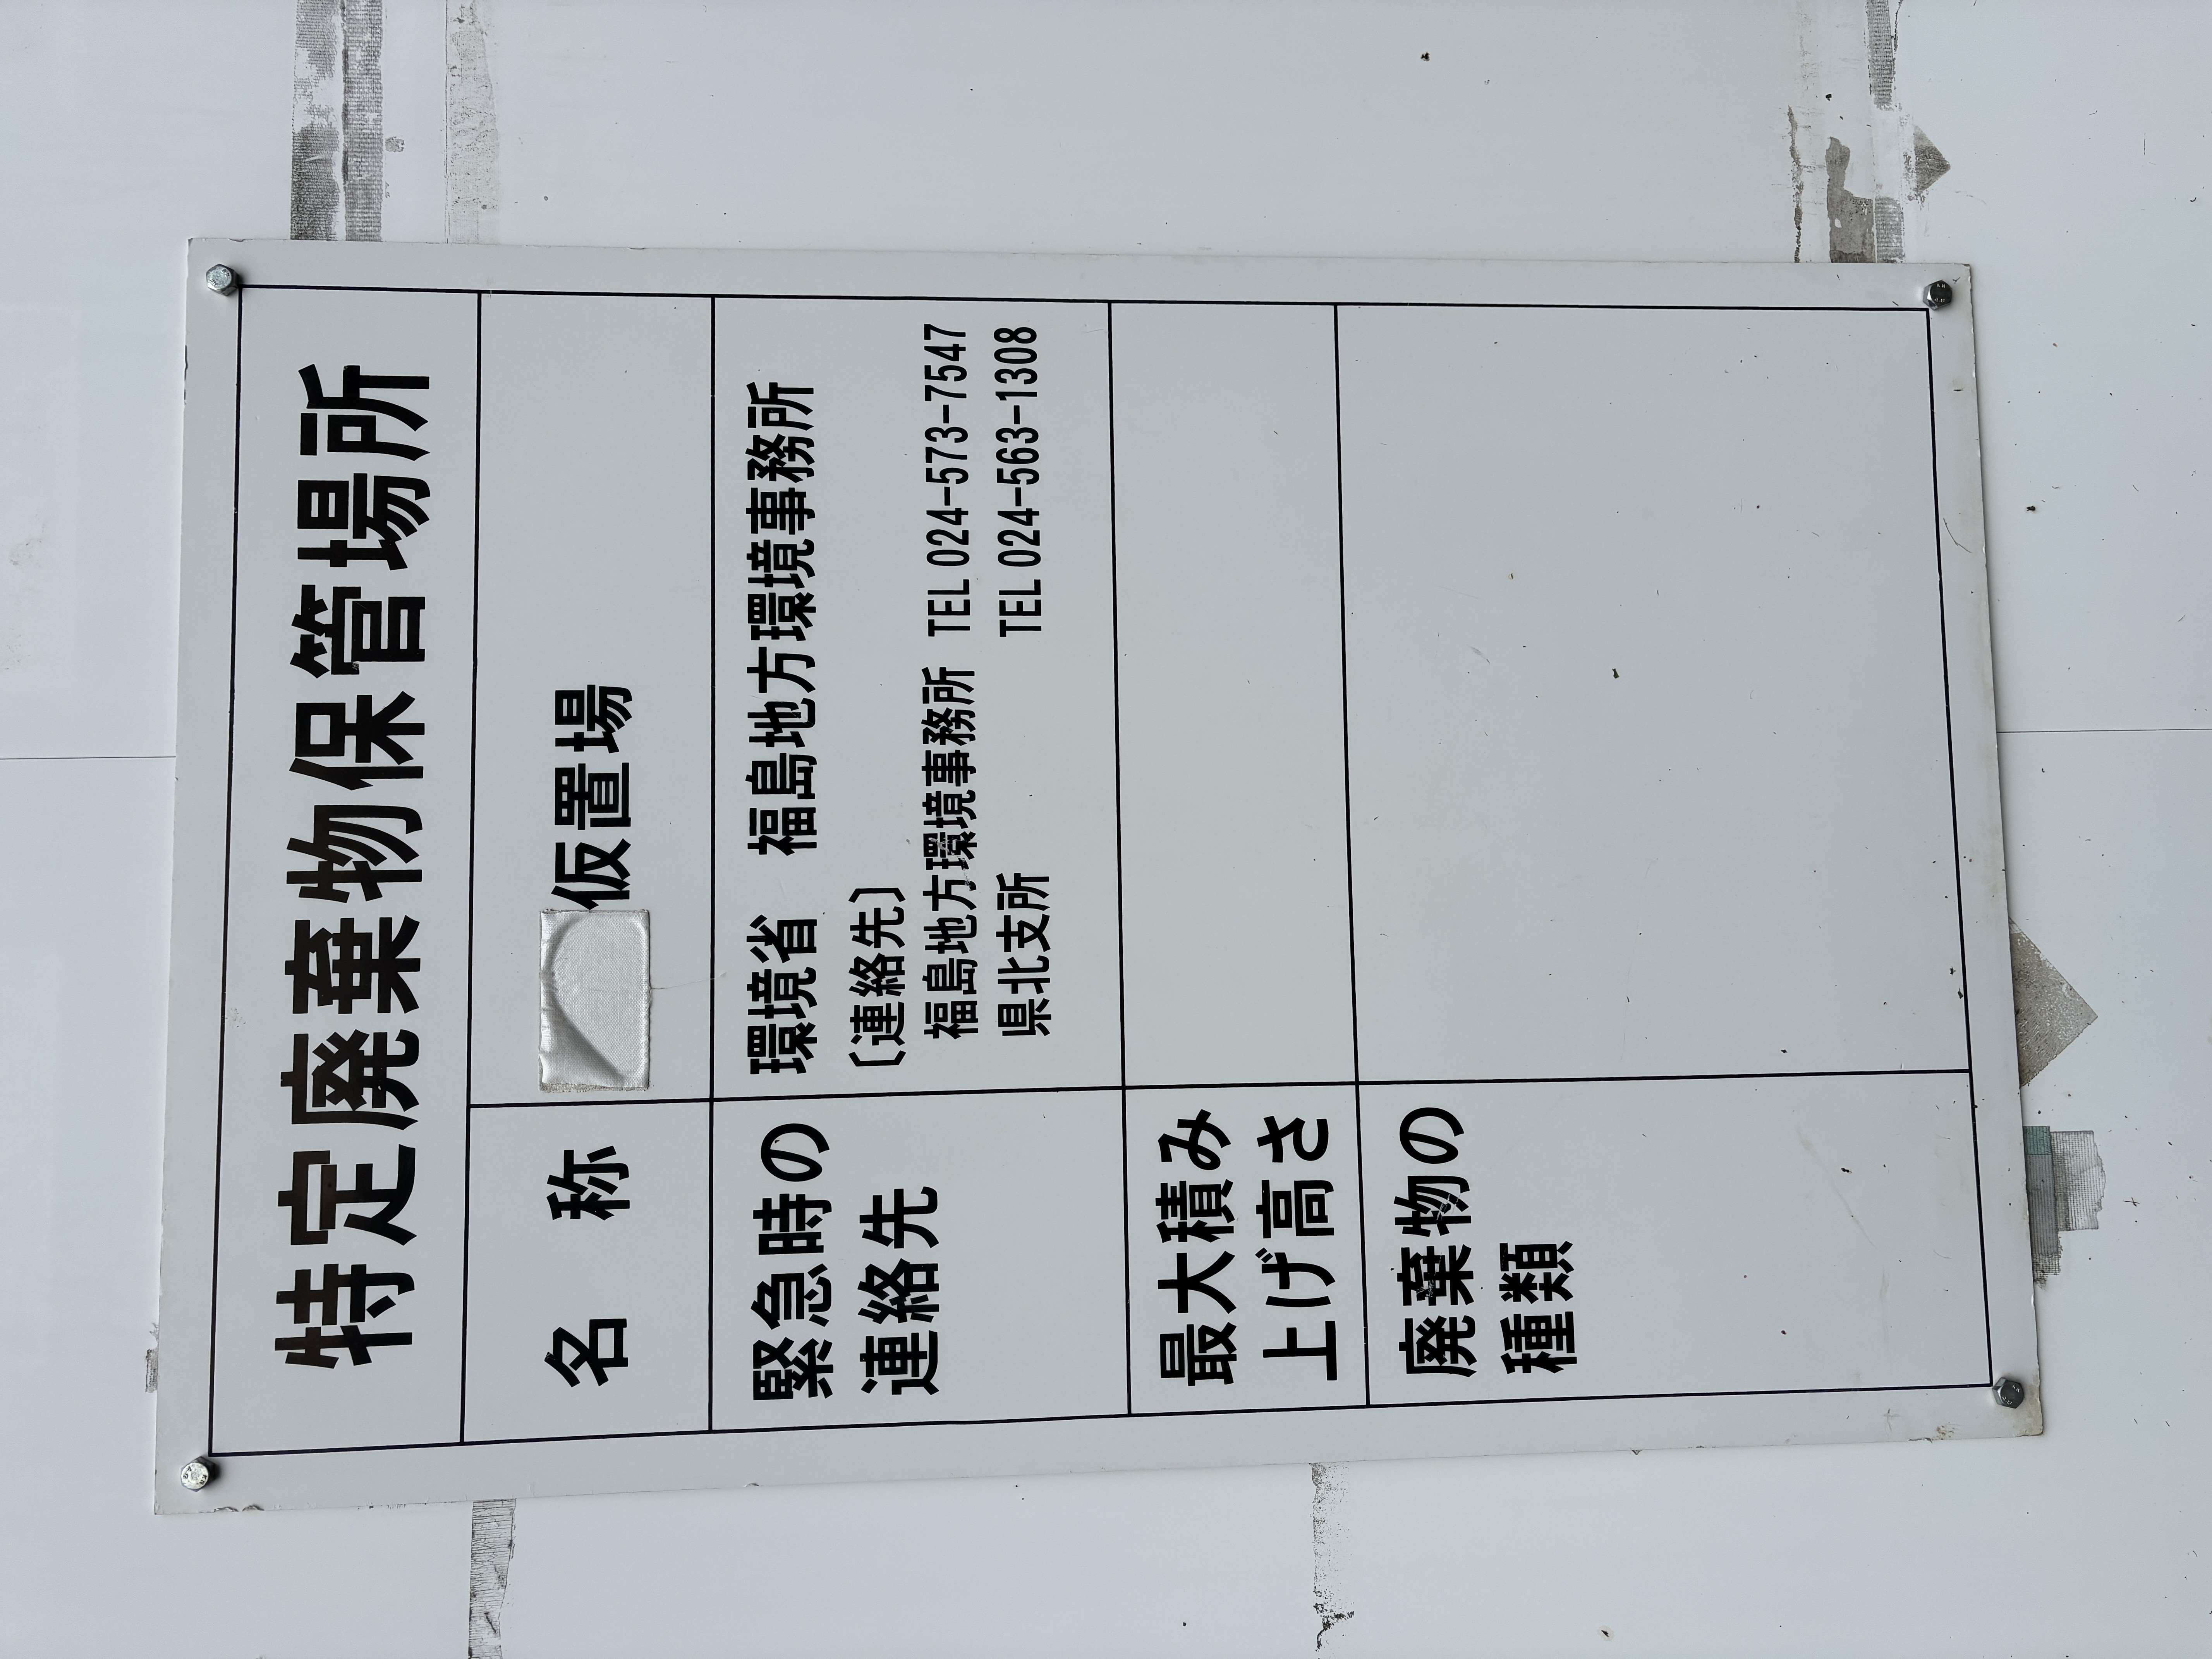 特定廃棄物保管場所
名 称
仮置場
緊急時の
連絡先
環境省 福島地方環境事務所
〔連絡先〕
福島地方環境事務所 TEL 024-573-7547
県北支所 TEL 024-563-1308
最大積み
上げ高さ
廃棄物の
種類